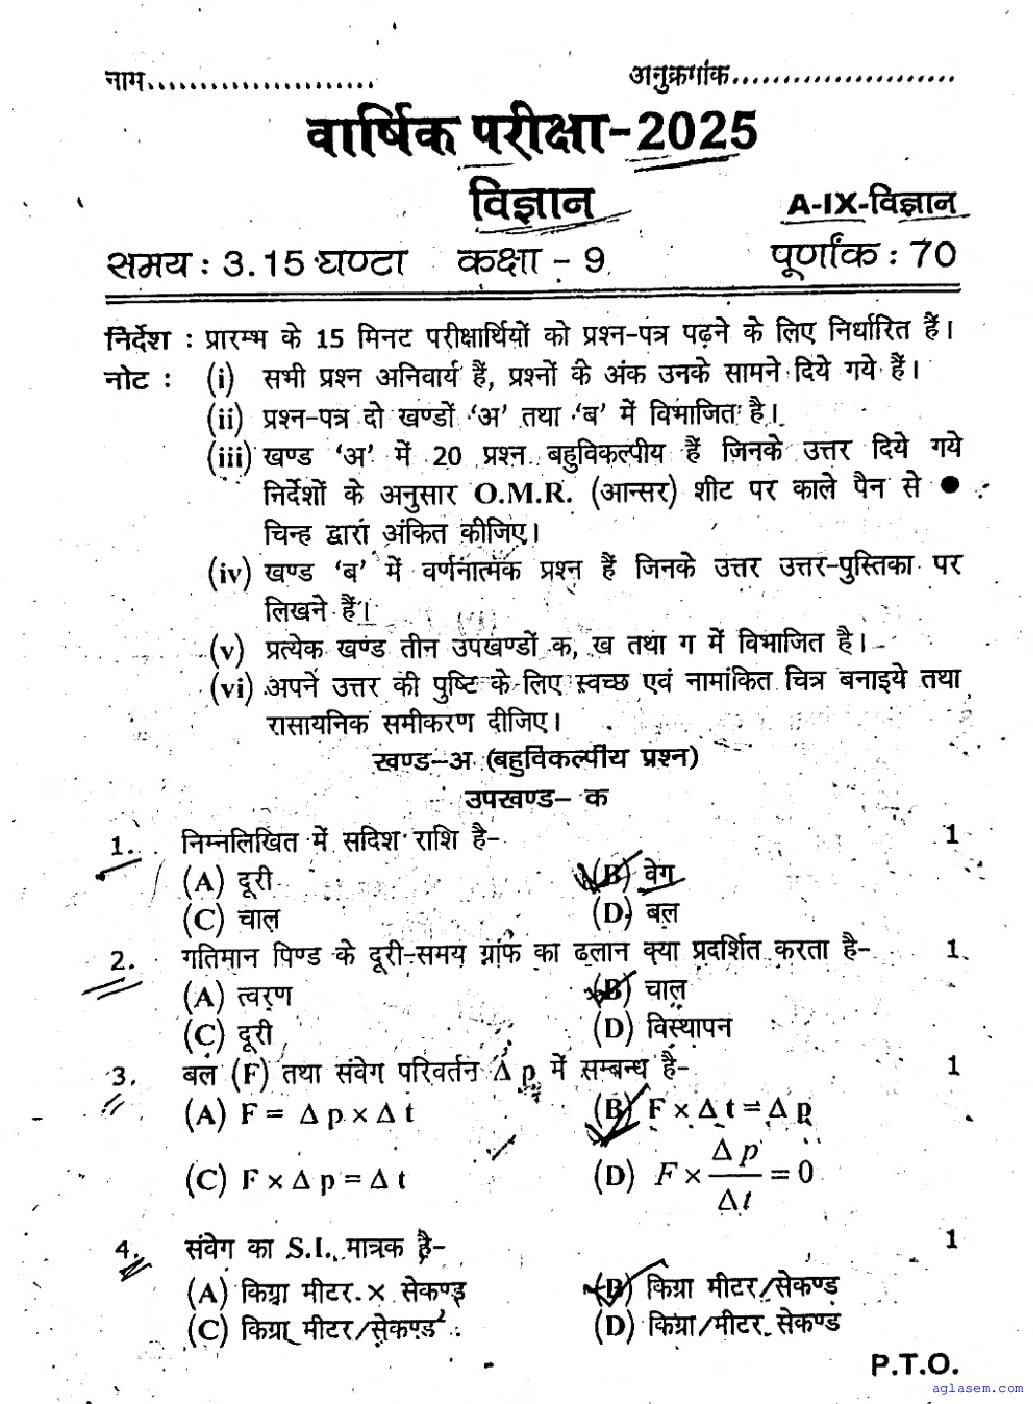 नाम........................ अनुक्रमांक........................
वार्षिक परीक्षा-2025
विज्ञान
A-IX-विज्ञान
समय : 3.15 घण्टा कक्षा - 9 पूर्णांक : 70
निर्देश : प्रारम्भ के 15 मिनट परीक्षार्थियों को प्रश्न-पत्र पढ़ने के लिए निर्धारित हैं।
नोट : (i) सभी प्रश्न अनिवार्य हैं, प्रश्नों के अंक उनके सामने दिये गये हैं।
(ii) प्रश्न-पत्र दो खण्डों ‘अ’ तथा ‘ब’ में विभाजित है।
(iii) खण्ड ‘अ’ में 20 प्रश्न बहुविकल्पीय हैं जिनके उत्तर दिये गये
निर्देशों के अनुसार O.M.R. (आन्सर) शीट पर काले पैन से ●
चिन्ह द्वारा अंकित कीजिए।
(iv) खण्ड ‘ब’ में वर्णनात्मक प्रश्न हैं जिनके उत्तर उत्तर-पुस्तिका पर
लिखने हैं।
(v) प्रत्येक खण्ड तीन उपखण्डों क, ख तथा ग में विभाजित है।
(vi) अपने उत्तर की पुष्टि के लिए स्वच्छ एवं नामांकित चित्र बनाइये तथा
रासायनिक समीकरण दीजिए।
खण्ड-अ (बहुविकल्पीय प्रश्न)
उपखण्ड- क
1. निम्नलिखित में सदिश राशि है- 1
(A) दूरी (B) वेग
(C) चाल (D) बल
2. गतिमान पिण्ड के दूरी-समय ग्राफ का ढलान क्या प्रदर्शित करता है- 1
(A) त्वरण (B) चाल
(C) दूरी (D) विस्थापन
3. बल (F) तथा संवेग परिवर्तन Δ p में सम्बन्ध है- 1
(A) F = Δ p × Δ t (B) F × Δ t = Δ p
(C) F × Δ p = Δ t (D) F × Δp/Δt = 0
4. संवेग का S.I. मात्रक है- 1
(A) किग्रा मीटर × सेकण्ड (B) किग्रा मीटर/सेकण्ड
(C) किग्रा मीटर/सेकण्ड² (D) किग्रा/मीटर सेकण्ड
P.T.O.
aglasem.com